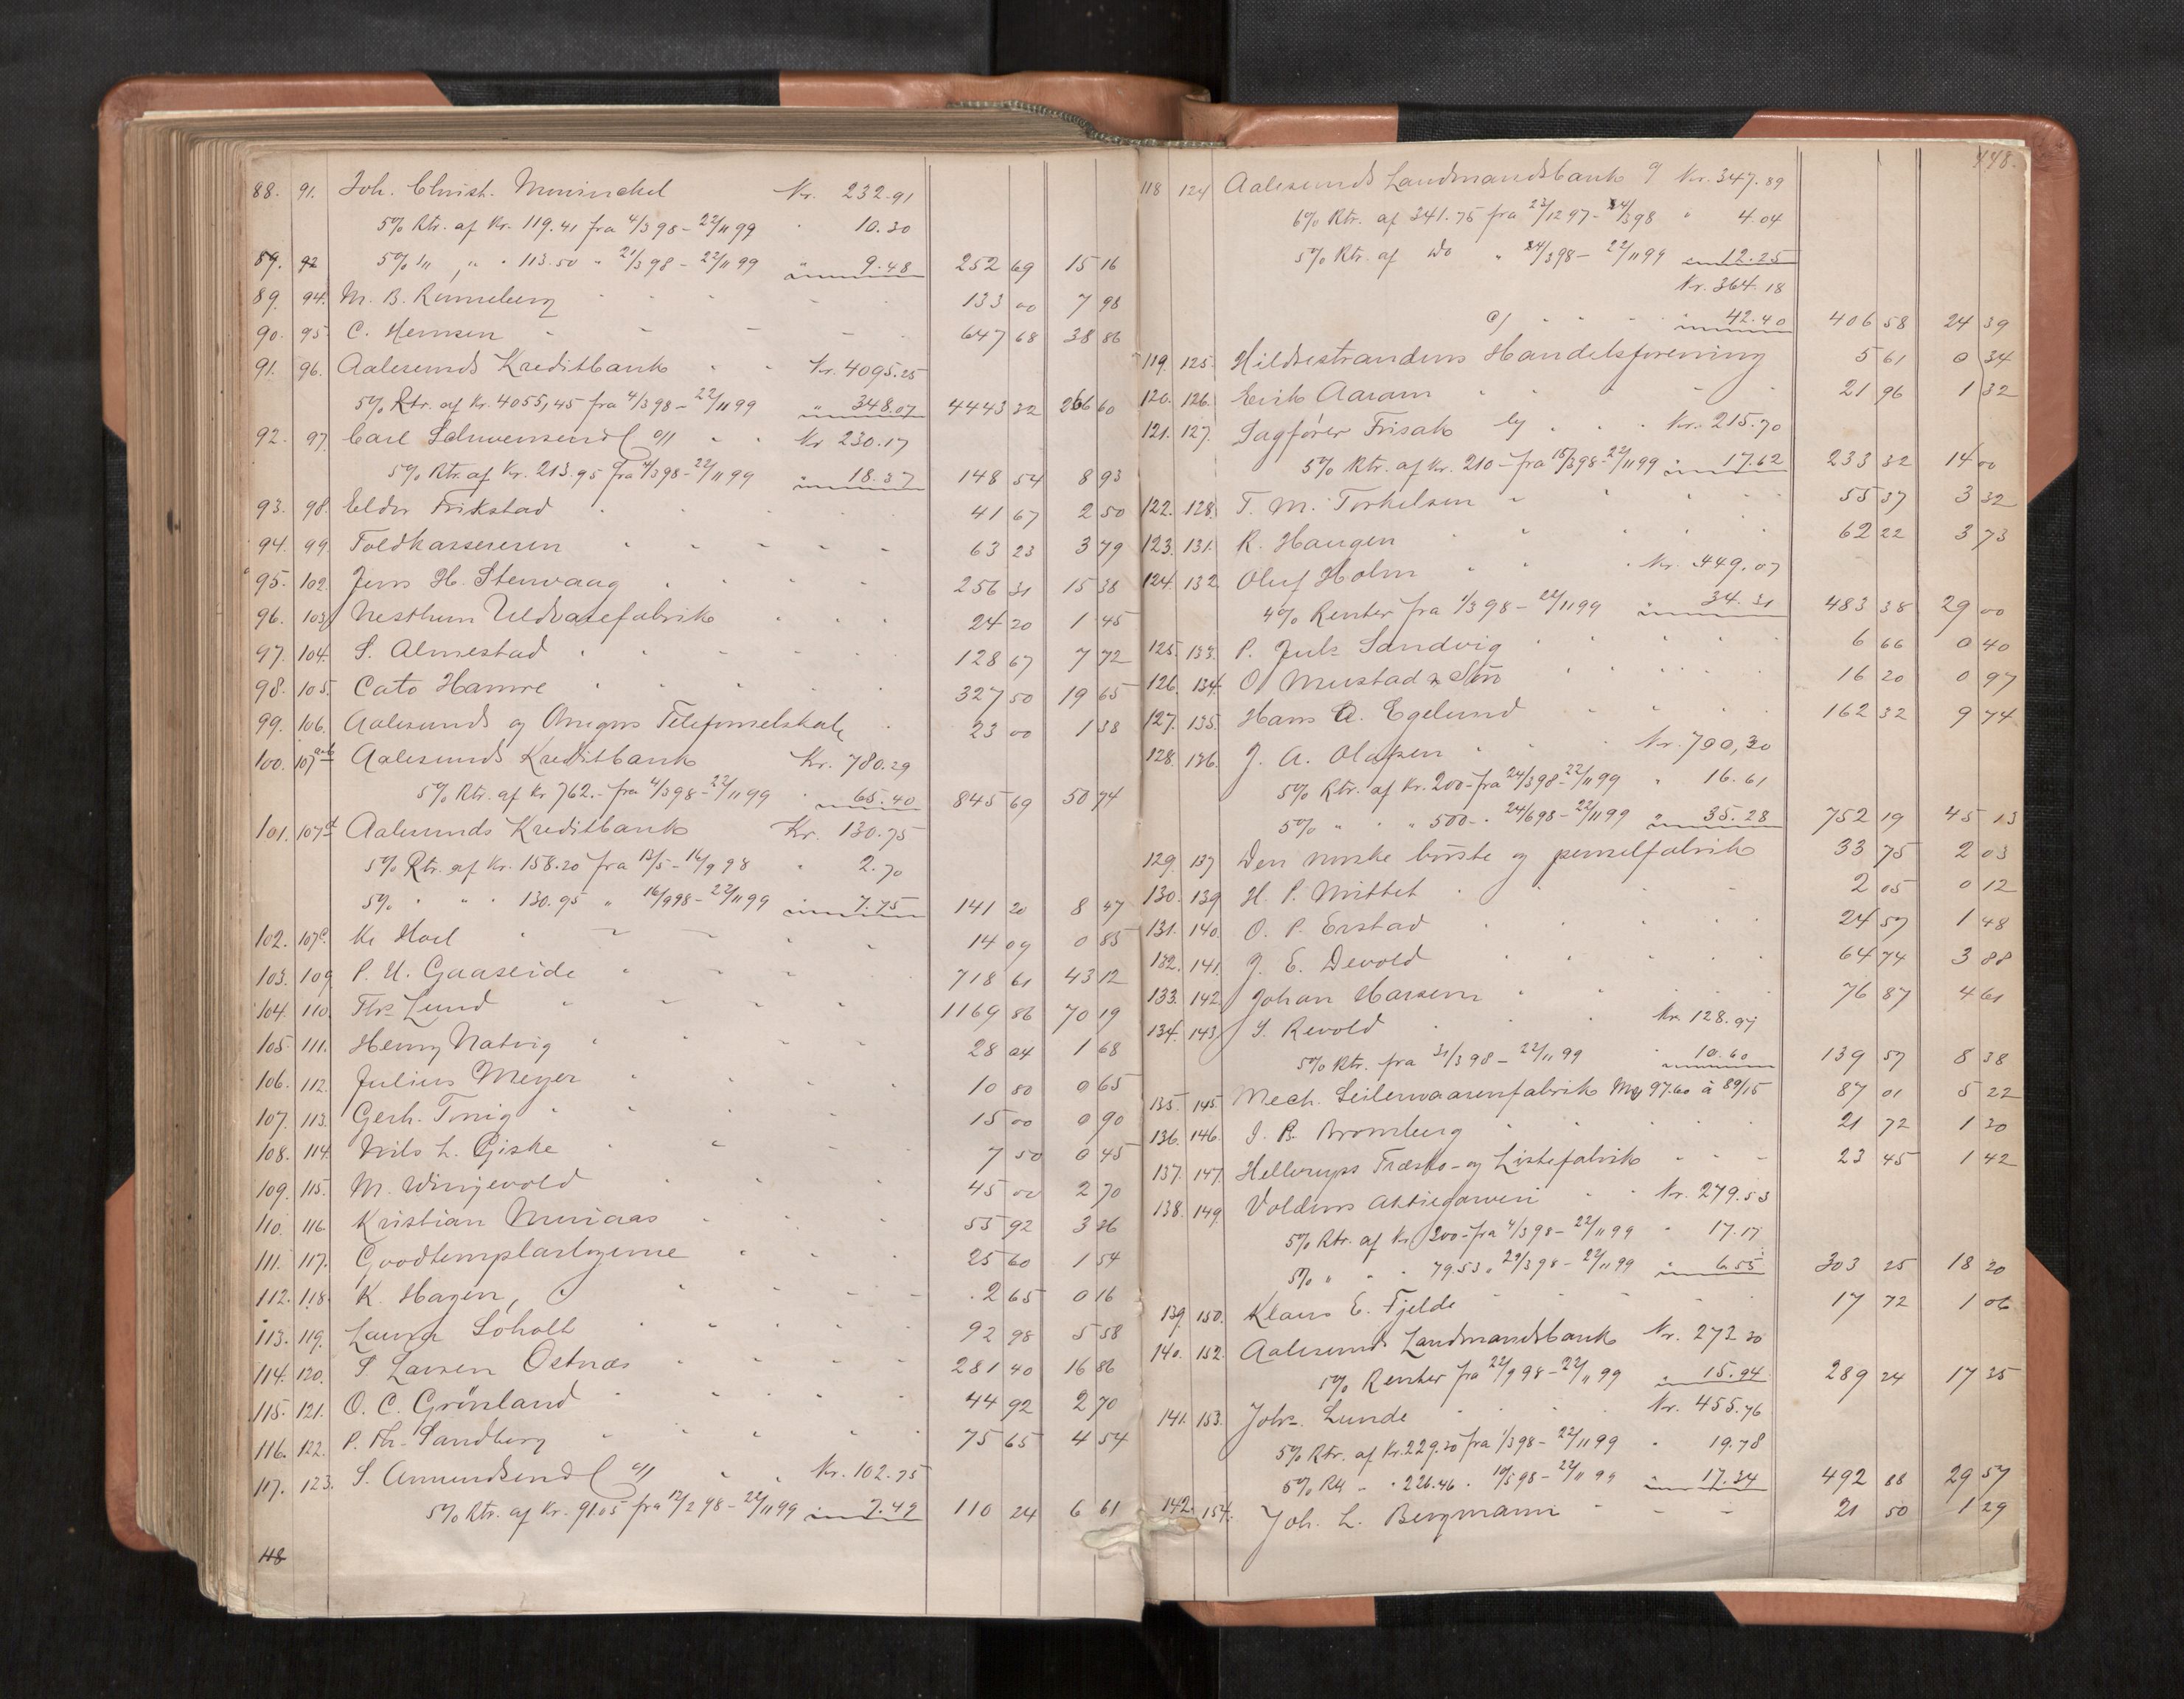 88. 91. Joh. Christ. Mowinckel Kr. 232.91
5% Rtr. af Kr. 119.41 fra 4/3 98 - 22/11 99 " 10.30
89. 92 5% " " " 113.50 " 21/3 98 - 22/11 99 " 9.48 252 69 15 16
89. 94. M. B. Rønneberg 133 00 7 98
90. 95. C. Hernsen 647 68 38 86
91. 96. Aalesunds Kreditbank Kr. 4095.25
5% Rtr. af Kr. 4055,45 fra 4/3 98 - 22/11 99 " 348.07 4443 32 266 60
92. 97. Carl Schwensen Kr 230.17
5% Rtr. af Kr. 213.95 fra 4/3 98 - 22/11 99 18.37 148 54 8 93
93. 98. Eldor Frikstad 41 67 2 50
94. 99. Toldkassereren 63 23 3 79
95. 102. Jens H. Stenvaag 256 31 15 38
96. 103. Nesttun Uldvarefabrik 24 20 1 45
97. 104. S. Almestad 128 67 7 72
98. 105. Cato Hamre 327 50 19 65
99. 106. Aalesunds og Omegns Telefonselskab 23 00 1 38
100. 107 a+b Aalesunds Kreditbank Kr. 780.29
5% Rtr. af Kr 762.- fra 4/3 98 - 22/11 99 " 65.40 845 69 50 74
101. 107 d Aalesunds Kreditbank Kr. 130.75
5% Rtr. af Kr. 158.20 fra 13/5 - 16/9 98 " 2.70
5% " " " 130.95 " 16/9 98 - 22/11 99 7.75 141 20 8 47
102. 107 c. Kr Hoel 14 09 0 85
103. 109 P. U. Gaaseide 718 61 43 12
104. 110. Ths Lund 1169 86 70 19
105. 111. Henry Natvig 28 04 1 68
106. 112. Julius Meyer 10 80 0 65
107. 113. Gerh. Tonig 15 00 0 90
108. 114. Nils L. Giske 7 50 0 45
109. 115. M. Wingevold 45 00 2 70
110. 116. Kristian Muriaas 55 92 3 36
111. 117. Goodtemplarlogerne 25 60 1 54
112. 118. K. Hagen, 2 65 0 16
113. 119. Laura Soholt 92 98 5 58
114. 120. S. Larsen Ostnæs 281 40 16 86
115. 121. O. C. Grönland 44 92 2 70
116. 122. P. Th. Sandberg 75 65 4 54
117. 123. S. Amundsen Kr. 102.75
5% Rtr. af Kr. 91.05 fra 12/2 98 - 22/11 99 7.49 110 24 6 61
118
448.
118 124 Aalesunds Landmandsbank Kr. 347.89
6% Rtr. af 341.75 fra 23/12 97 - 24/3 98 " 4.04
5% Rtr. af do " 24/3 98 - 22/11 99 12.25
Kr. 364.18
42.40 406 58 24 39
119. 125. Hildrestrandens Handelsforening 5 61 0 34
120. 126. Erik Aaram 21 96 1 32
121. 127. Sagfører Frisak Kr. 215.70
5% Rtr. af Kr. 210 - fra 15/3 98 - 22/11 99 17.62 233 32 14 00
122. 128. T. M. Torkelsen 55 37 3 32
123. 131. R. Haugen 62 22 3 73
124. 132 Oluf Holm Kr. 449.07
4% Renter fra 1/3 98 - 22/11 99 34.31 483 38 29 00
125. 133. P. Juls Sandvig 6 66 0 40
126. 134. O. Mustad & Søn 16 20 0 97
127. 135. Hans A. Egelund 162 32 9 74
128. 136. J. A. Olafsen Kr. 700,30
5% Rtr. af Kr. 200 - fra 24/3 98 - 22/11 99 " 16.61
5% " " " 500 - " 24/6 98 - 22/11 99 35.28 752 19 45 13
129. 137 Den norske børste og penselfabrik 33 75 2 03
130. 139 H. P. Mittet 2 05 0 12
131. 140. O. P. Erstad 24 57 1 48
132. 141. J. E. Devold 64 74 3 88
133. 142. Johan Harsem 76 87 4 61
134. 143 S. Revold Kr. 128.97
5% Rtr. fra 31/3 98 - 22/11 99 " 10.60 139 57 8 38
135. 145. Mech. Seilervaarenfabrik Mrg 97.60 à 89/15 87 01 5 22
136. 146. J. B. Bromberg 21 72 1 30
137. 147. Hellerups Træsko- og Listefabrik 23 45 1 42
138. 149. Voldens Aktiegarveri Kr. 279.53
5% Rtr. af Kr 200 - fra 4/3 98 - 22/11 99 " 17.17
5% " " " 79.53 " 29/3 98 - 22/11 99 6.55 303 25 18 20
139. 150. Klaus E. Fjelde 17 72 1 06
140. 152. Aalesunds Landmandsbank Kr. 273 30
5% Renter fra 22/9 98 - 22/11 99 15.94 289 24 17 35
141. 153. Johs. Lunde Kr. 455.76
5% Rtr. af Kr. 229.30 fra 1/3 98 - 22/11 99 " 19.78
5% Rtr " " 226.46 " 10/5 98 - 22/11 99 17.34 492 88 29 57
142. 154. Joh. L. Bergmann 21 50 1 29